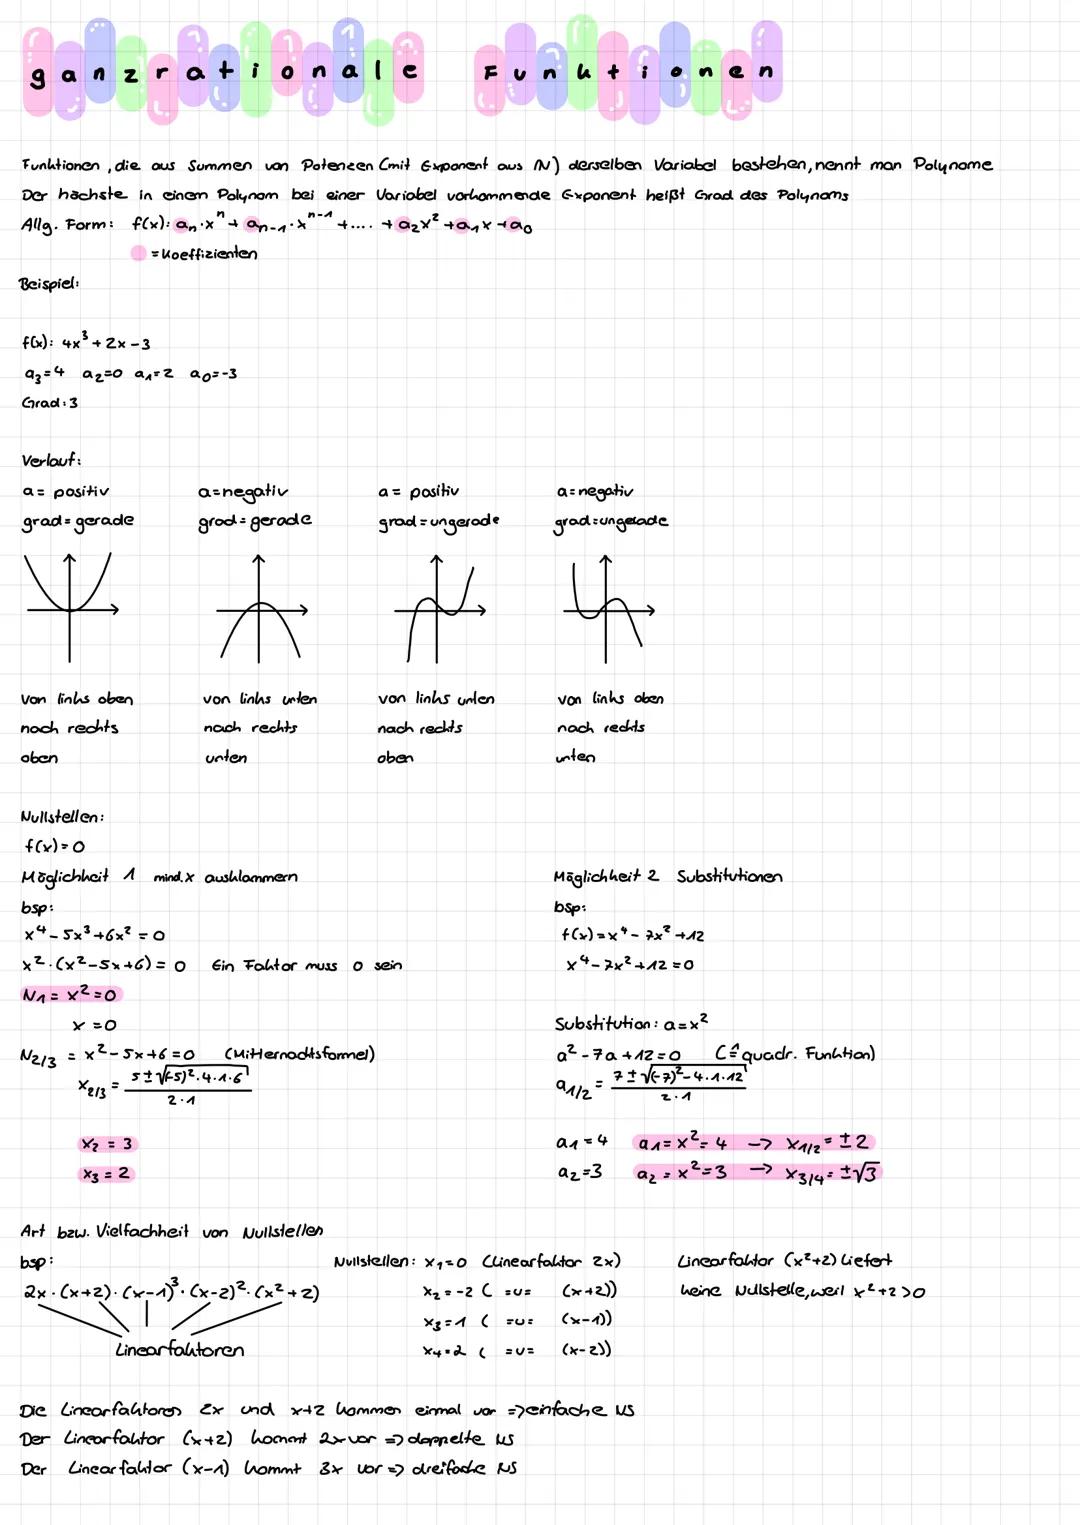 ganzrationale Funktionen
Funktionen, die aus Summen von Potenzen (mit Exponent aus ℕ) derselben Variabel bestehen, nennt man Polynome
Der höchste in einem Polynom bei einer Variabel vorkommende Exponent heißt Grad des Polynoms
Allg. Form: f(x): aₙ·xⁿ + aₙ₋₁·xⁿ⁻¹ + .... + a₂x² + a₁x + a₀
= Koeffizienten
Beispiel:
f(x): 4x³ + 2x - 3
a₃=4 a₂=0 a₁=2 a₀=-3
Grad: 3
Verlauf:
a = positiv a=negativ a = positiv a=negativ
grad=gerade grad=gerade grad=ungerade grad=ungerade
von links oben von links unten von links unten von links oben
nach rechts nach rechts nach rechts nach rechts
oben unten oben unten
Nullstellen:
f(x)=0
Möglichkeit 1 mind. x ausklammern
bsp:
x⁴ - 5x³ + 6x² = 0
x²·(x²-5x+6) = 0 Ein Faktor muss 0 sein
N₁ = x² = 0
x = 0
N₂/₃ = x² - 5x + 6 = 0 (Mitternachtsformel)
x₂/₃ = (5 ± √(-5)²·4·1·6) / (2·1)
x₂ = 3
x₃ = 2
Möglichkeit 2 Substitutionen
bsp:
f(x) = x⁴ - 7x² + 12
x⁴ - 7x² + 12 = 0
Substitution: a = x²
a² - 7a + 12 = 0 (≙ quadr. Funktion)
a₁/₂ = (7 ± √(-7)² - 4·1·12) / (2·1)
a₁ = 4 a₁ = x² = 4 -> x₁/₂ = ±2
a₂ = 3 a₂ = x² = 3 -> x₃/₄ = ±√3
Art bzw. Vielfachheit von Nullstellen
bsp:
2x·(x+2)·(x-1)³·(x-2)²·(x²+2)
Linearfaktoren
Nullstellen: x₁=0 (Linearfaktor 2x)
x₂ = -2 ( =u= (x+2))
x₃ = 1 ( =u= (x-1))
x₄ = 2 ( =u= (x-2))
Linearfaktor (x²+2) liefert
keine Nullstelle, weil x²+2 > 0
Die Linearfaktoren 2x und x+2 kommen einmal vor => einfache NS
Der Linearfaktor (x+2) kommt 2x vor => doppelte NS
Der Linearfaktor (x-1) kommt 3x vor => dreifache NS